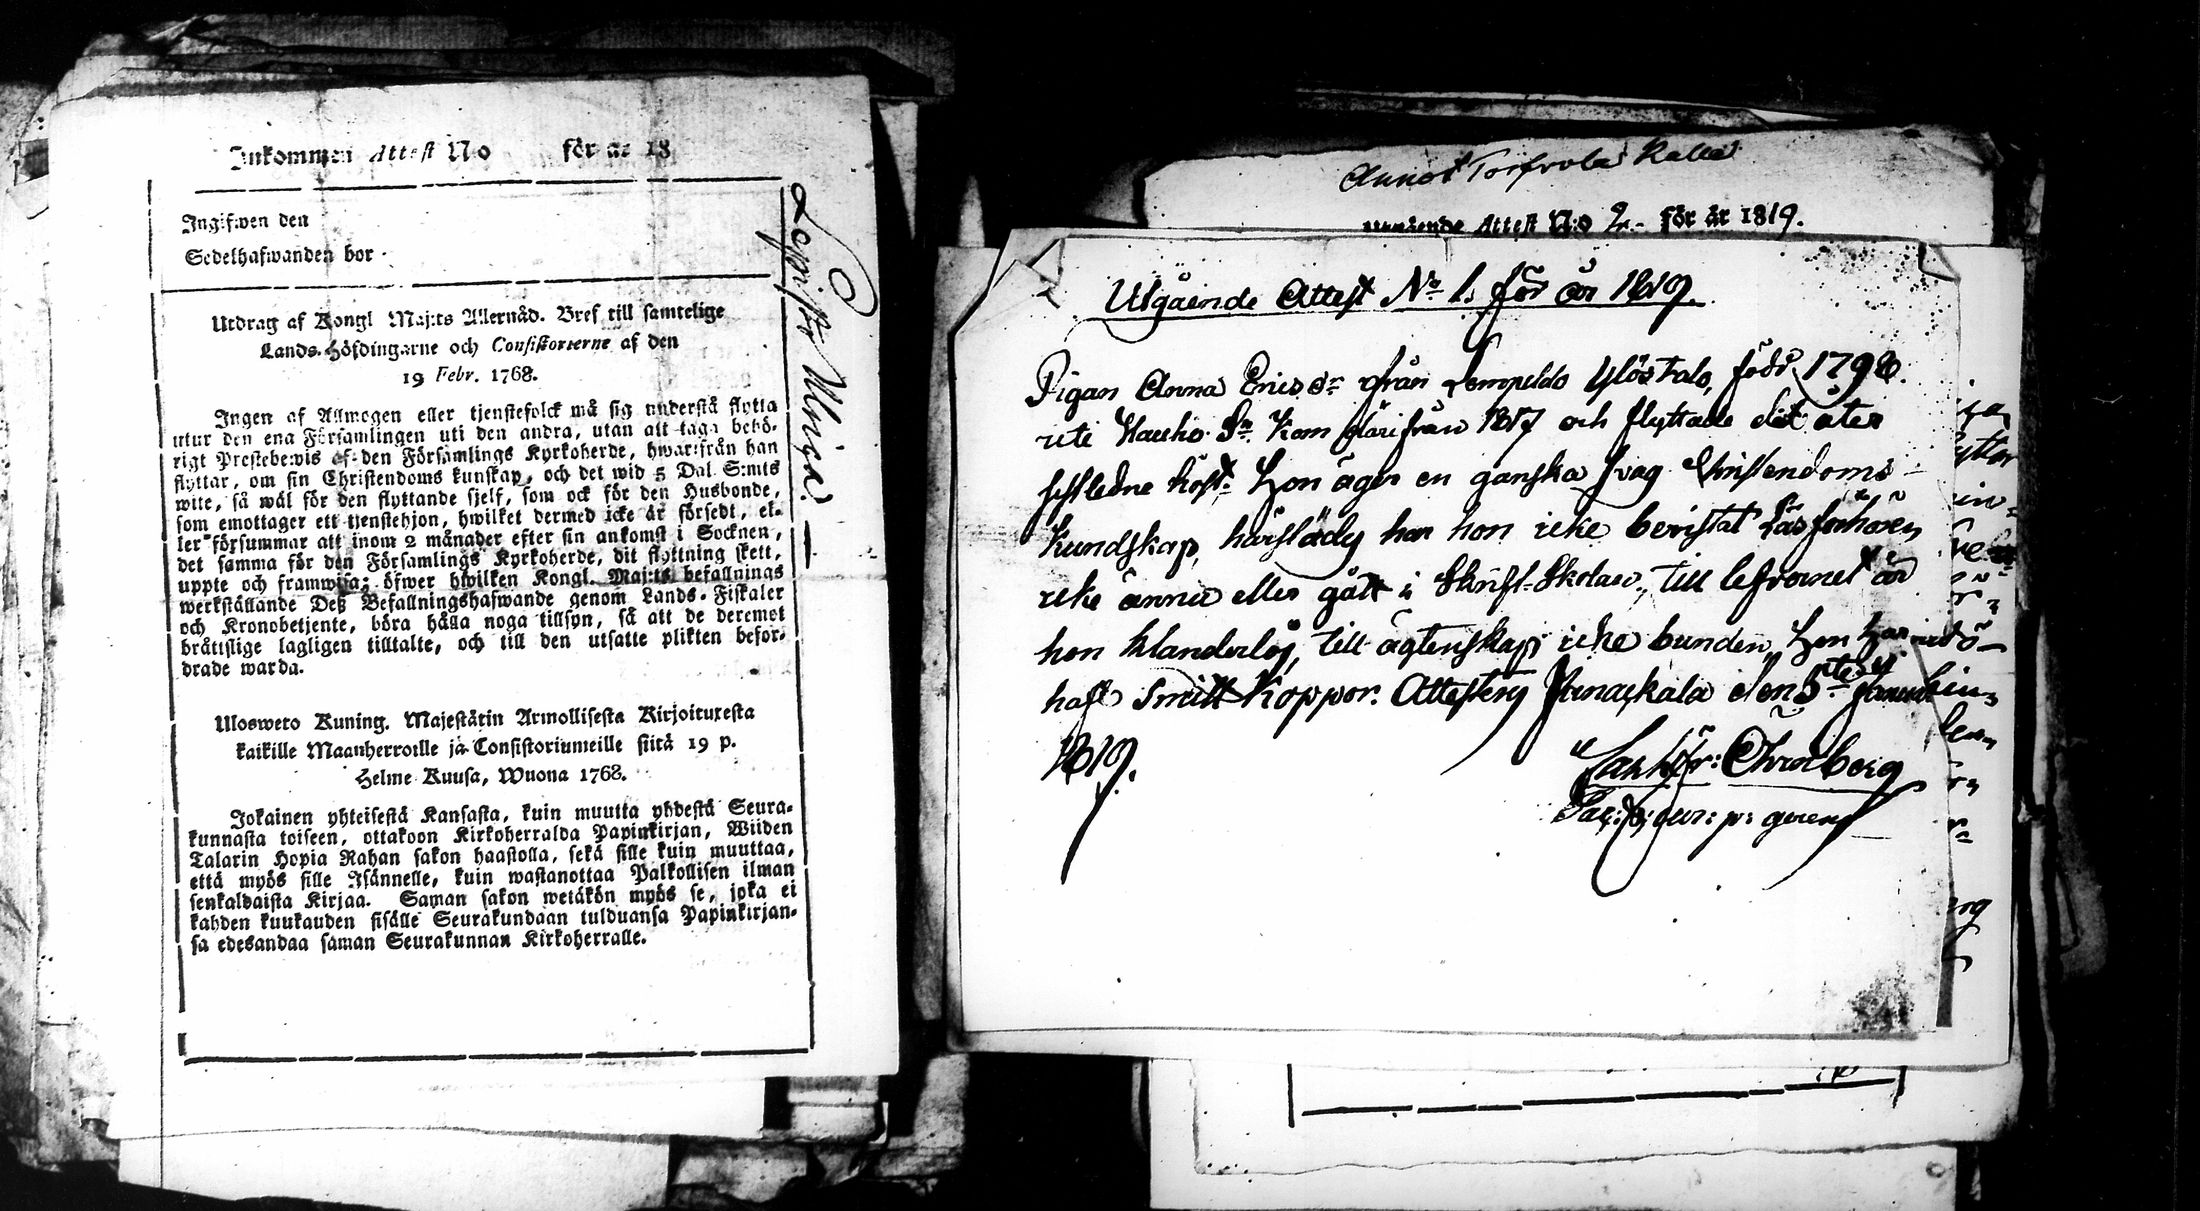 Inkommen Attest No för år 18
Ingifwen den
Sedelhafwanden bor
Loppis Uhrsa
Utdrag af Kongl Maj:ts Allernåd. Bref till samtelige
Lands-Höfdingarne och Consistorierne af den
19 Febr. 1768.
Ingen af Allmogen eller tjenstefolck må sig understå flytta
utur den ena Församlingen uti den andra, utan att taga behö-
rigt Prestebewis af den Församlings Kyrkoherde, hwarifrån han
flyttar, om sin Christendoms kunskap, och det wid 5 Dal. S:mts
wite, så wäl för den flyttande sjelf, som ock för den Husbonde,
som emottager ett tjenstehjon, hwilket dermed icke är försedt, el-
ler försummar att inom 2 månader efter sin ankomst i Socknen,
det samma för den Församlings Kyrkoherde, dit flyttning skett,
uppte och framwisa; öfwer hwilken Kongl. Maj:ts befallnings
werkställande Deß Befallningshafwande genom Lands-Fiskaler
och Kronobetjente, böra hålla noga tillsyn, så att de deremot
bråttslige lagligen tilltalte, och till den utsatte plikten befor-
drade warda.
Ulosweto Kuning. Majestätin Armollisesta Kirjoituxesta
kaikille Maanherroille ja Consistoriumeille siitä 19 p.
Helme Kuusa, Wuona 1768.
Jokainen yhteisestä Kansasta, kuin muutta yhdestä Seura-
kunnasta toiseen, ottakoon Kirkoherralda Papinkirjan, Wiiden
Talarin Hopia Rahan sakon haastolla, sekä sille kuin muuttaa,
että myös sille Isännelle, kuin wastanottaa Palkollisen ilman
senkaldaista Kirjaa. Saman sakon wetäkön myös se, joka ei
kahden kuukauden sisälle Seurakundaan tulduansa Papinkirjan-
sa edesandaa saman Seurakunnan Kirkoherralle.
Annot Torfvola Kalla
Utgående Attest No 2. för år 1819.
Utgående Attest No 1. för år 1819.
Pigan Anna Ericsdr från Lempeldo Ylöstalo, född 1798.
uti Hauho Sn. Kom därifrån 1817 och flyttade dit åter
sistledne höst. Hon äger en ganska svag Christendoms
Kundskap, hvarföre har hon icke bevistat Läsförhören
icke ännu eller gått i Skrift-Skolan, till lefvernet är
hon klanderlös, till ägtenskap icke bunden, hon har
haft Smitt Koppor. Attesteras Janackala den 5te Januarii
1819.